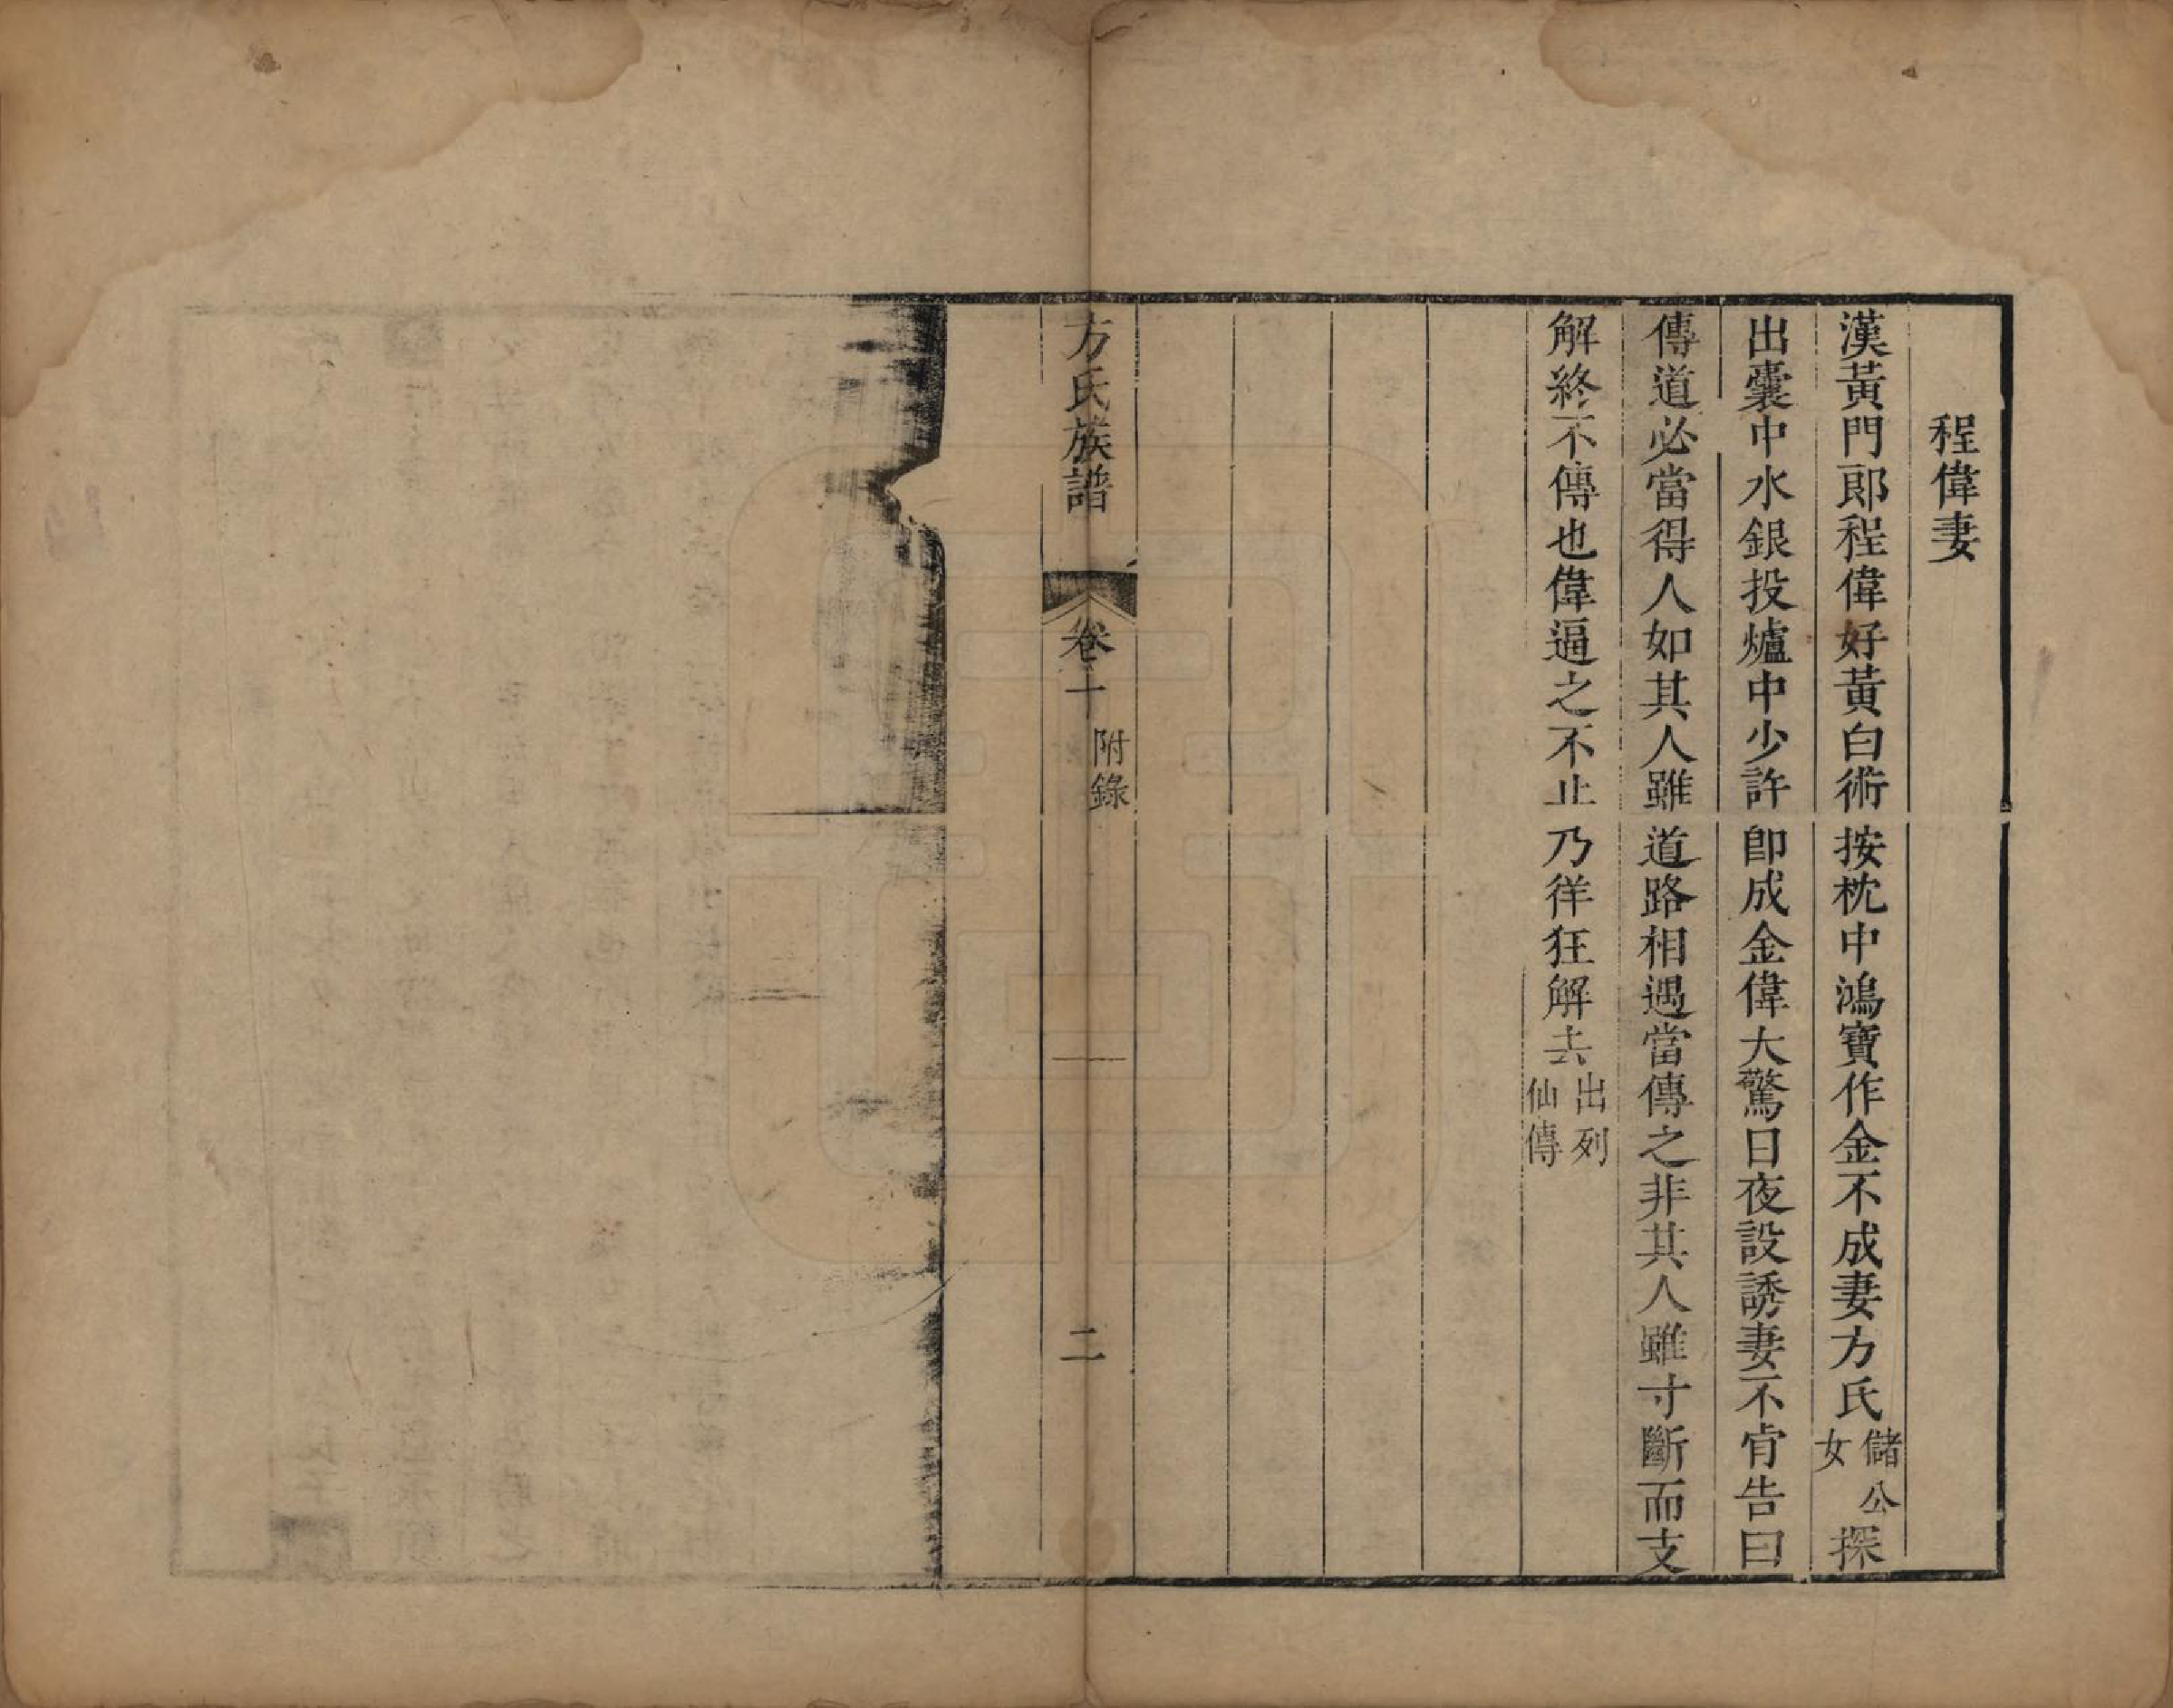 程偉妻
漢黃門郎程偉好黃白術按枕中鴻寶作金不成妻方氏儲公女探
出囊中水銀投爐中少許即成金偉大驚日夜設誘妻不肯告曰
傳道必當得人如其人雖道路相遇當傳之非其人雖寸斷而支
解終不傳也偉逼之不止乃徉狂解去出列仙傳
方氏族譜 卷十 附錄 二